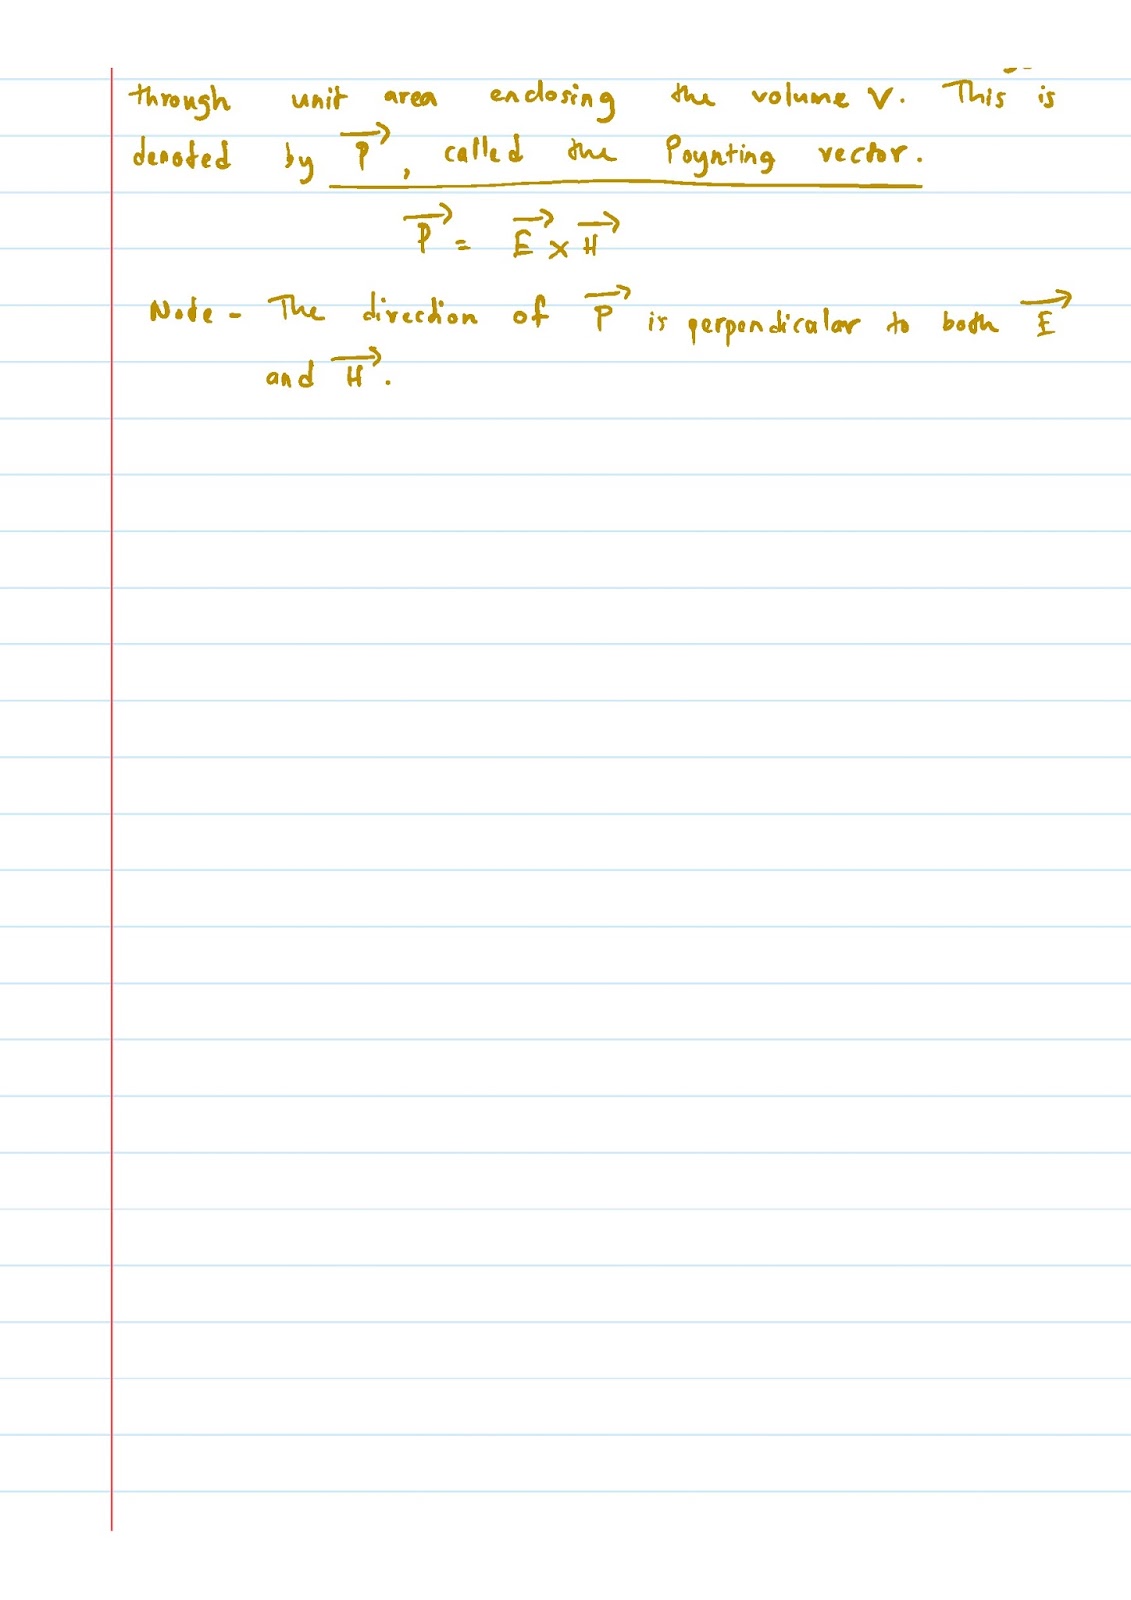 through unit area enclosing the volume V. This is
denoted by \vec{P}, called the Poynting vector.
\vec{P} = \vec{E} × \vec{H}
Note - The direction of \vec{P} is perpendicular to both \vec{E}
and \vec{H}.